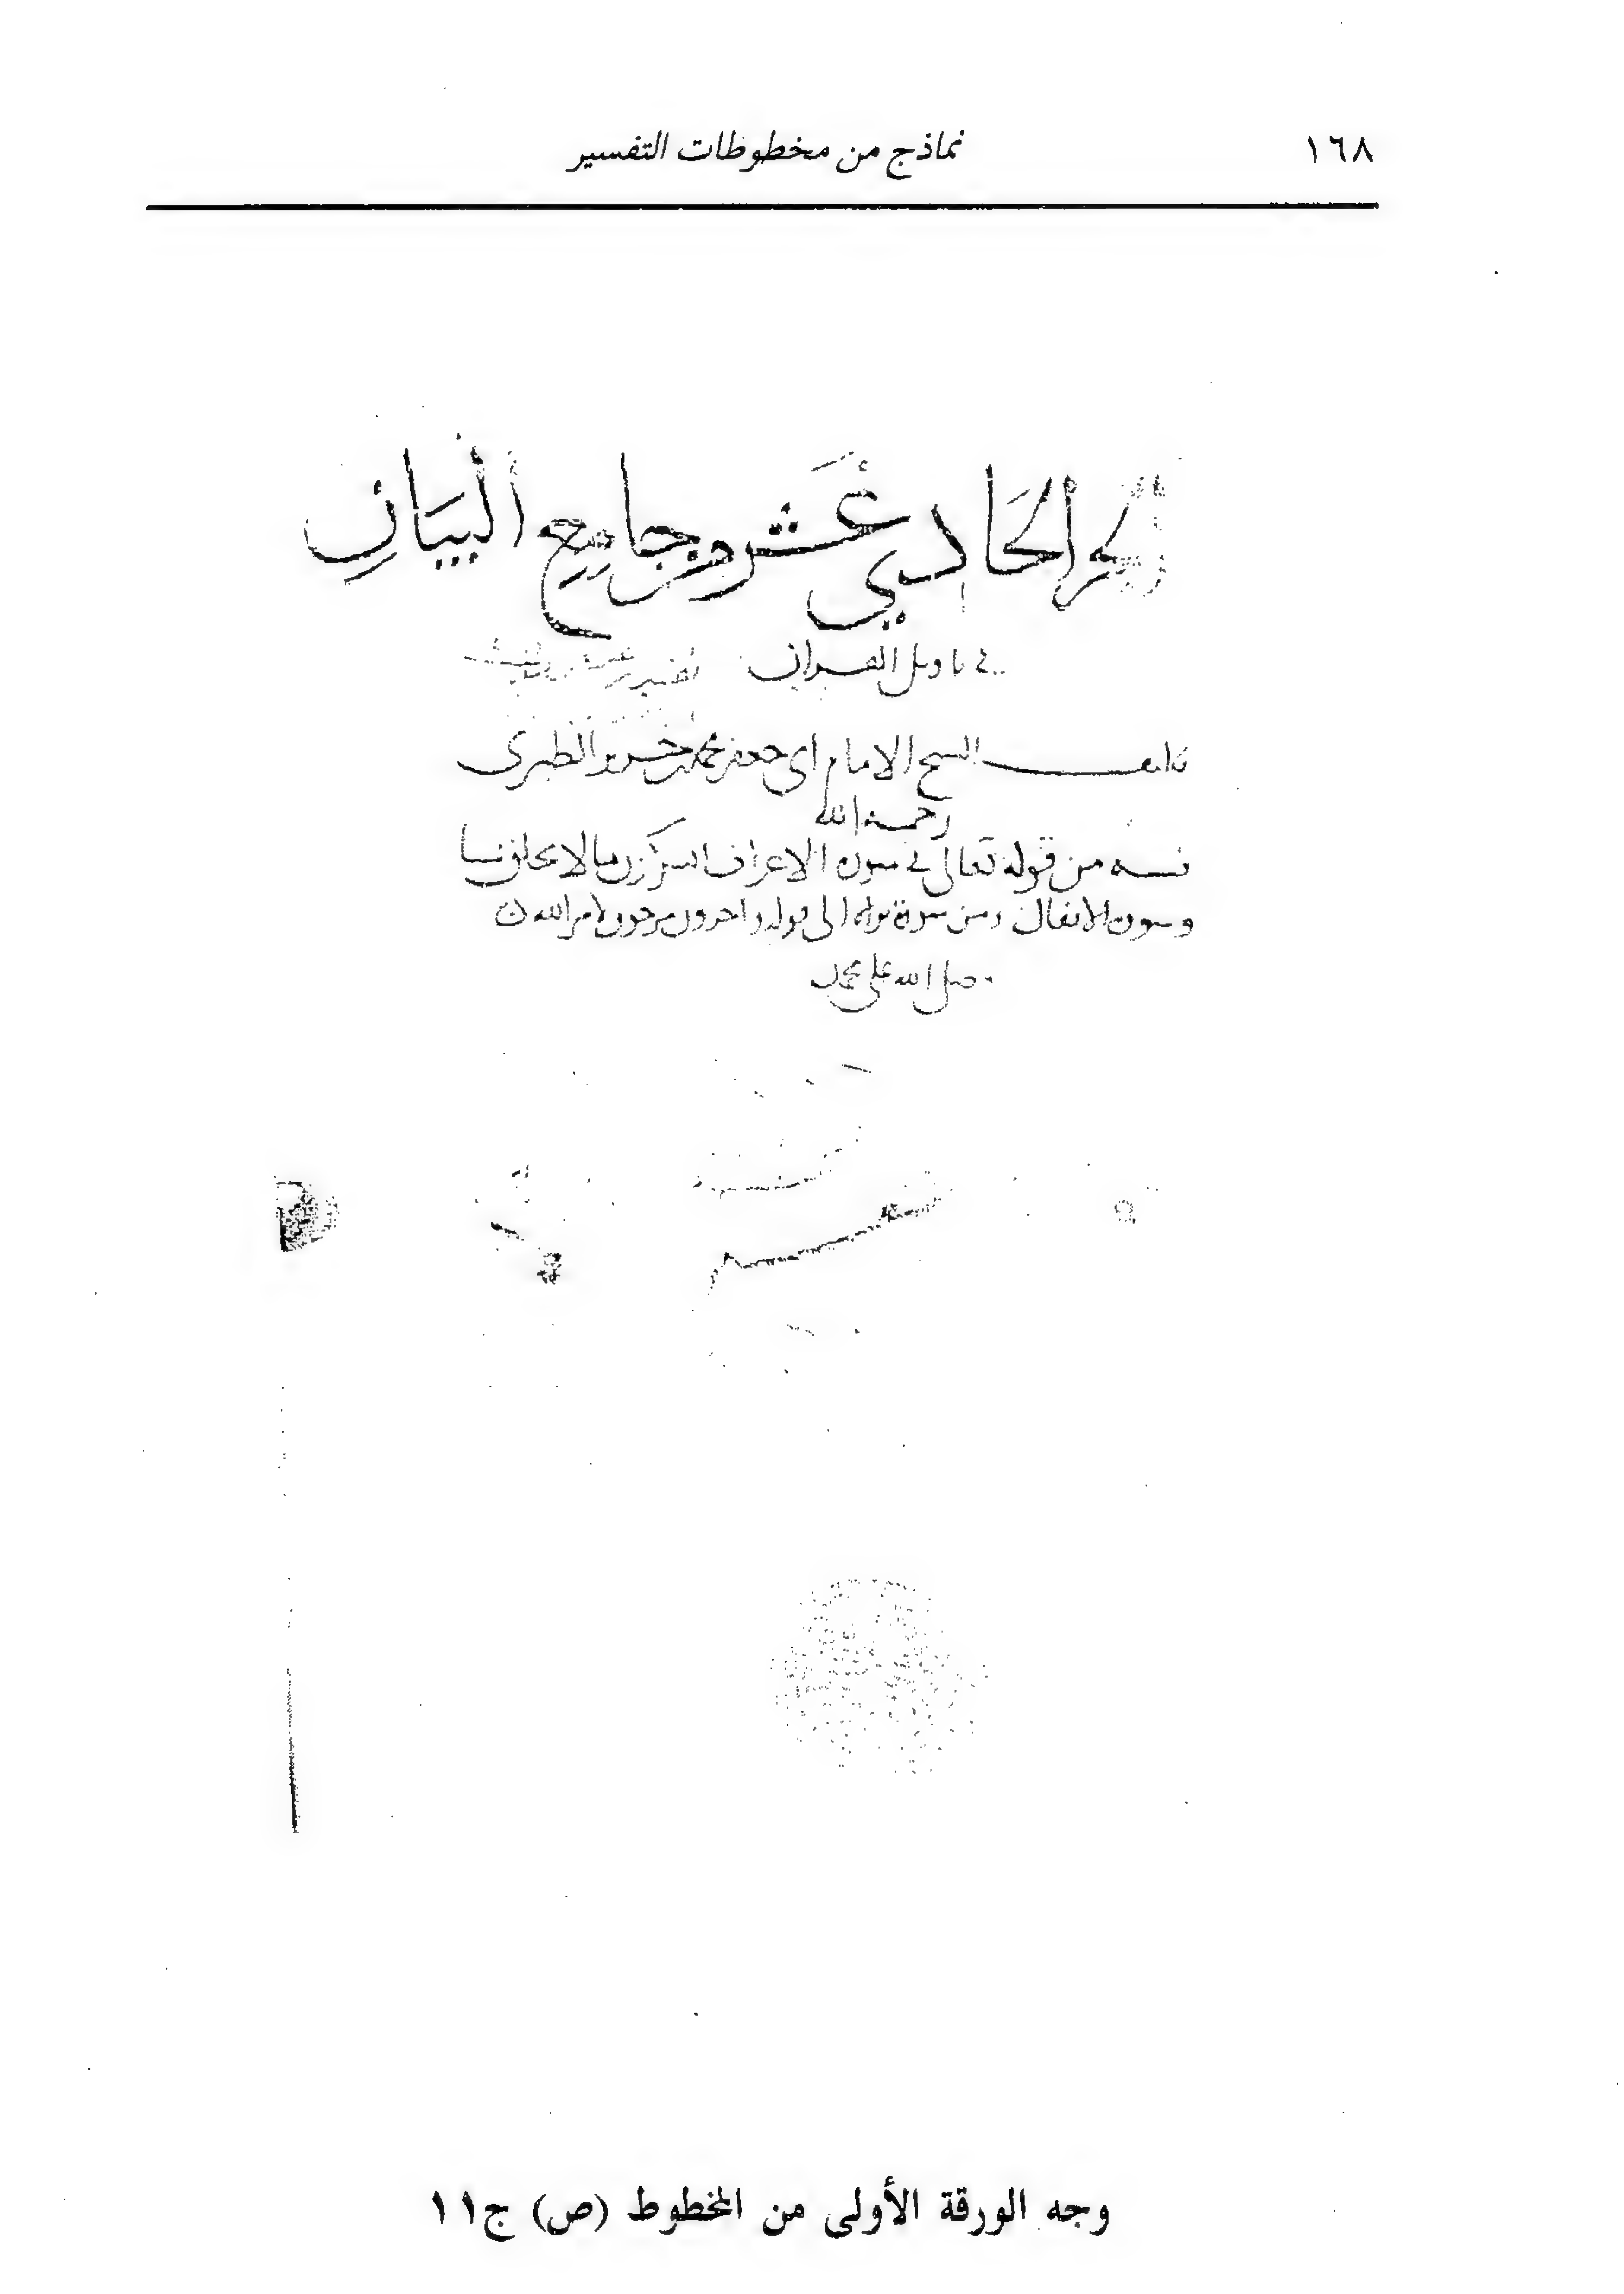 ١٦٨
نماذج من مخطوطات التفسير
الجزء الحَادِي عَشر من جامِع ألبيَانِ
في تاويل القران
تاليف الشيخ الامام ابي جعفر محمد بن جرير الطبري
رحمه الله
فيه من قوله تعالى في سورة الاعراف ايشركون مالا يخلق شيا
وسورة الانفال ومن سورة براه الى قوله واخرون مرجون لامر الله
وصلى الله على محمد
وجه الورقة الأولى من المخطوط (ص) ج١١